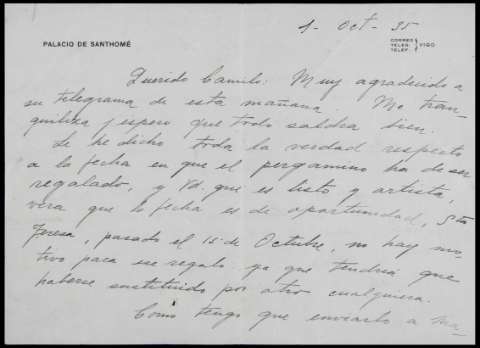 4 - Oct - 35
PALACIO DE SANTHOMÉ
CORREO
TELEG.
TELEF.
VIGO
Querido Camilo: Muy agradecido a
su telegrama de esta mañana. Me tran-
quiliza y espero que todo saldra bien.
Le he dicho toda la verdad respecto
a la fecha en que el pergamino ha de ser
regalado, y Vd. que es listo y artista,
vera que la fecha es de oportunidad, Sta
Teresa, pasado el 15 de Octubre, no hay mo-
tivo para ese regalo ya que tendria que
haberse sustituido por otro cualquiera.
Como tengo que enviarlo a Ma-